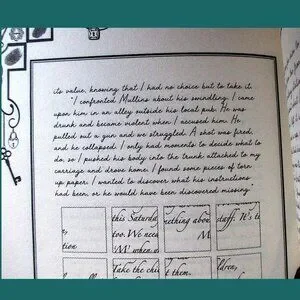 its value, knowing that I had no choice but to take it.
"I confronted Mullins about his swindling. I came
upon him in an alley outside his local pub. He was
drunk and became violent when I accused him. He
pulled out a gun and we struggled. A shot was fired,
and he collapsed. I only had moments to decide what to
do, so I pushed his body into the trunk attached to my
carriage and drove home. I found some pieces of torn-
up paper. I wanted to discover what his instructions
had been, or he would have been discovered missing."
this Saturday
too. We need
M' when
nothing about
M
staff. It's t
tion
Take the chi
t them.
ldren,